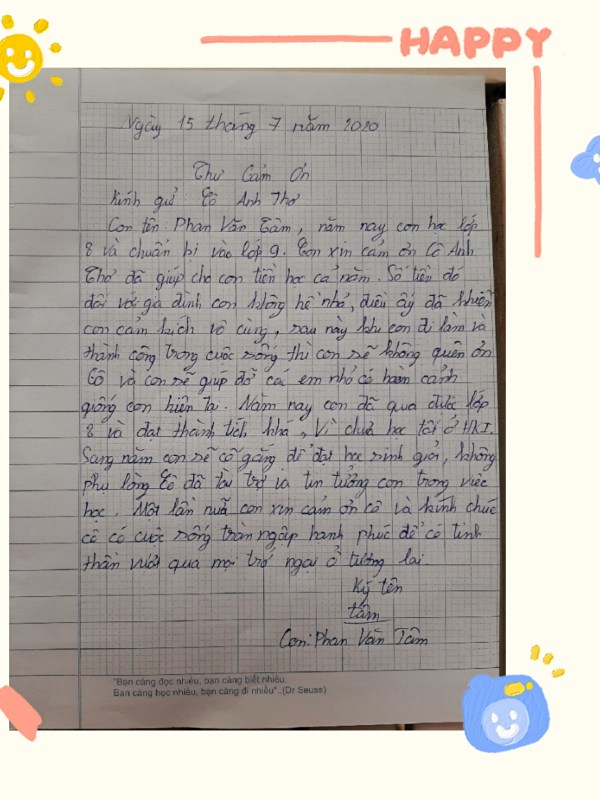 HAPPY
Ngày 15 tháng 7 năm 2020
Thư Cảm Ơn
Kính gửi Cô Anh Thơ
Con tên: Phan Văn Tâm, năm nay con học lớp
8 và chuẩn bị vào lớp 9. Con xin cảm ơn Cô Anh
Thơ đã giúp cho con tiền học cả năm. Số tiền đó
đối với gia đình con không hề nhỏ, điều ấy đã khiến
con cảm kích vô cùng, sau này khi con đi làm và
thành công trong cuộc sống thì con sẽ không quên ơn
Cô và con sẽ giúp đỡ các em nhỏ có hoàn cảnh
giống con hiện tại. Năm nay con đã qua được lớp
8 và đạt thành tích khá, Vì chưa học tốt ở HKI.
Sang năm con sẽ cố gắng để đạt học sinh giỏi, không
phụ lòng Cô đã tài trợ và tin tưởng con trong việc
học. Một lần nữa con xin cảm ơn cô và kính chúc
cô có cuộc sống tràn ngập hạnh phúc để có tinh
thần vượt qua mọi trở ngại ở tương lai.
Ký tên
tâm
Con: Phan Văn Tâm
"Bạn càng đọc nhiều, bạn càng biết nhiều.
Bạn càng học nhiều, bạn càng đi nhiều"..(Dr Seuss)